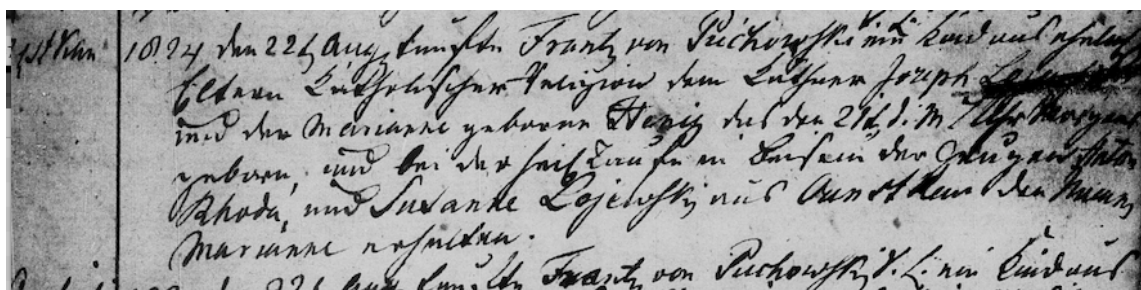 1824 den 22t Aug taufte Frantz von Puchowski ein Kind aus
Eltern Katholischer Religion dem Käthner Joseph
und der Marianne geborne Henig das den 21t d. M. 7 Uhr Morgens
geboren, und bei der heil Taufe in Beisein der Zeugen Anton
Rhode, und Susanne Lojewski aus den Namen
Marianne erhalten.
den 22t Aug taufte Frantz von Puchowski ein Kind aus